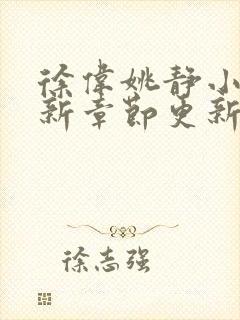 徐偉姚静小
新章節更新
徐志强